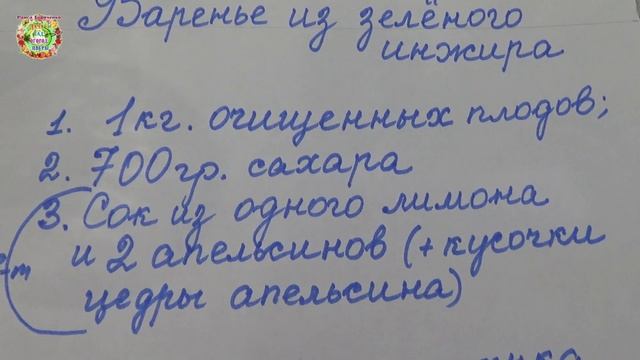 Варенье из зелёного
инжира
1. 1кг. очищенных плодов;
2. 700гр. сахара
3. Сок из одного лимона
и 2 апельсинов (+ кусочки
цедры апельсина)